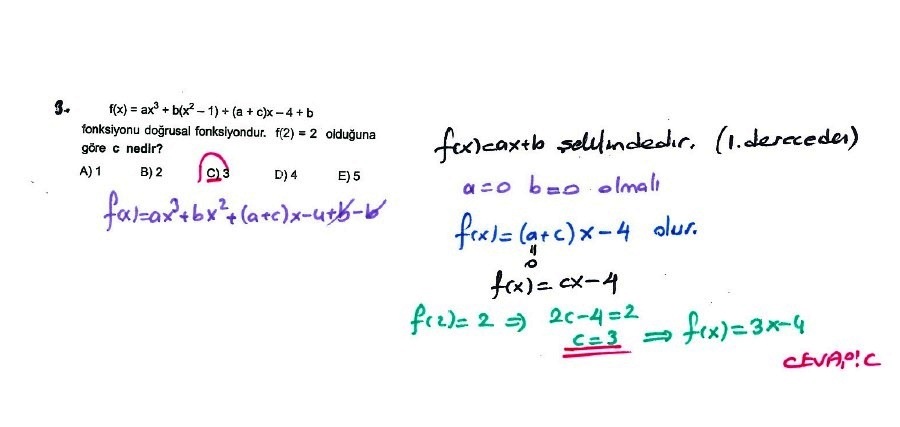 3. f(x) = ax³ + b(x² – 1) + (a + c)x – 4 + b
fonksiyonu doğrusal fonksiyondur. f(2) = 2 olduğuna
göre c nedir?
A) 1 B) 2 C) 3 D) 4 E) 5
f(x)=ax³+bx²+(a+c)x-4+b-b
f(x)=ax+b şeklindedir. (1.dereceden)
a=0 b=0 olmalı
f(x)=(a+c)x-4 olur.
0
f(x)=cx-4
f(2)=2 ⇒ 2c-4=2
c=3 ⇒ f(x)=3x-4
CEVAP: C